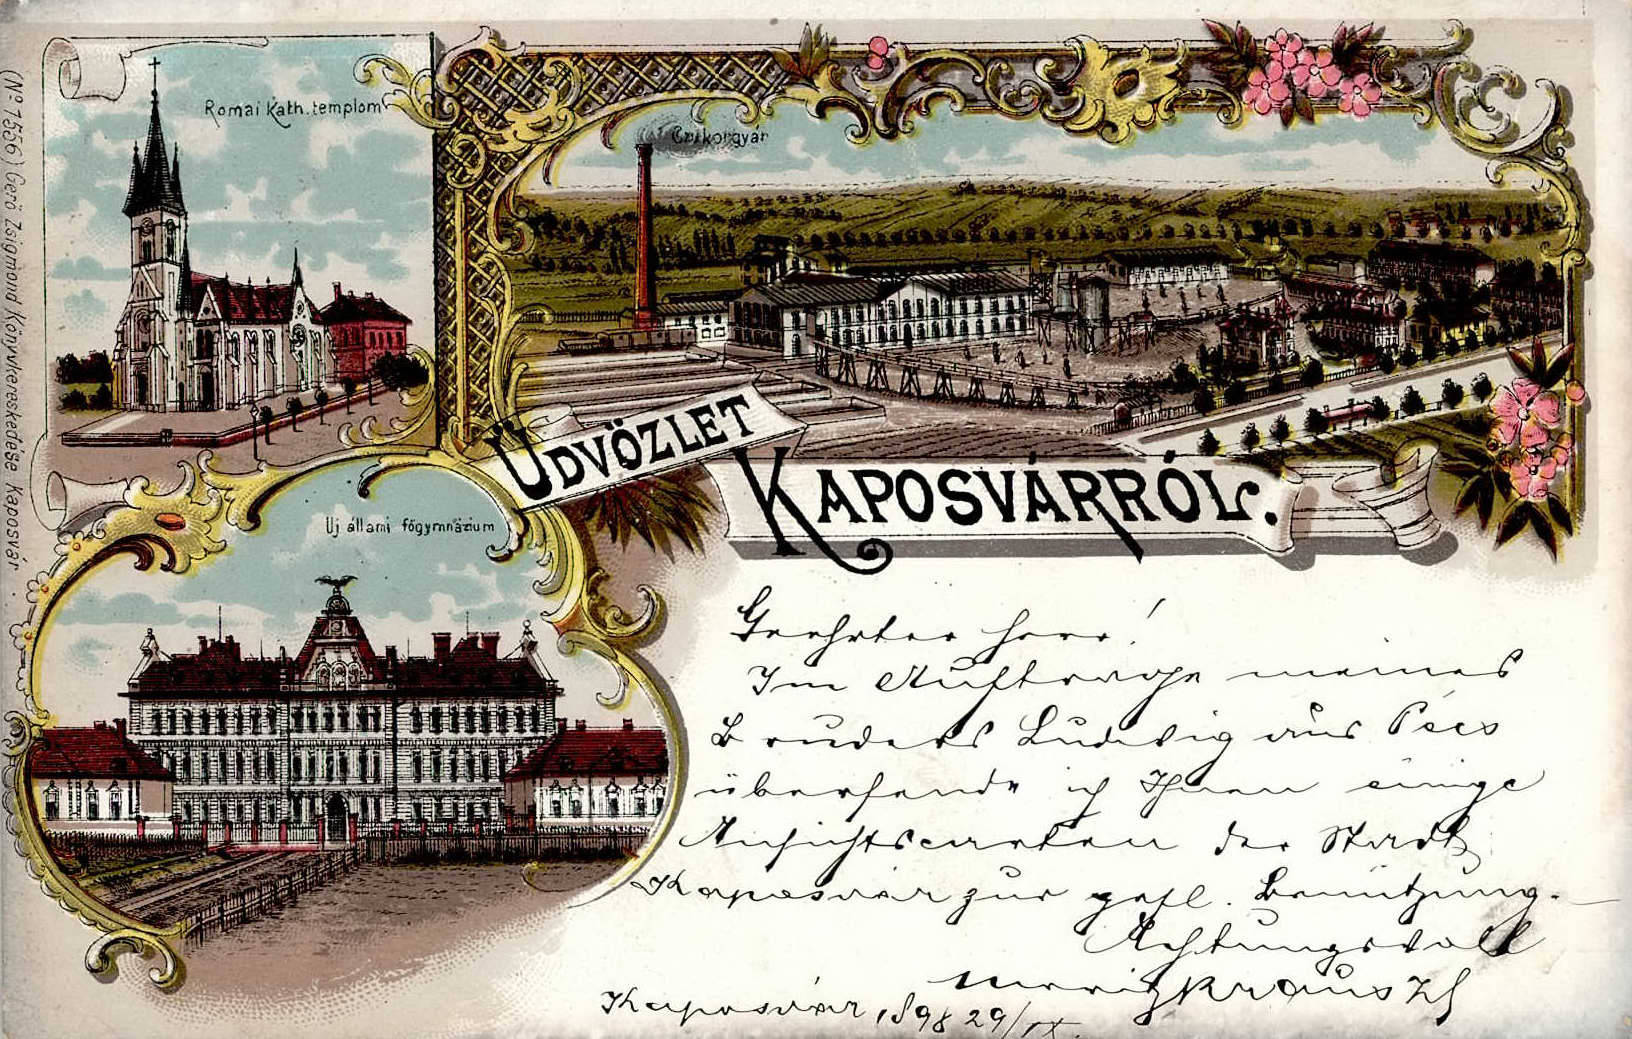 (Nº 1556) Gerő Zsigmond Könyvkereskedése Kaposvár.
Romai Kath. templom
Czukorgyár
ÜDVÖZLET
KAPOSVÁRRÓL.
Uj állami főgymnázium
Geehrter Herr!
Im Auftrage meines
Bruders Ludwig aus Pécs
übersende ich Ihnen einige
Ansichtscarten der Stadt
Kaposvár zur gefl. Benützung.
Achtungsvoll
Kraus
Kaposvár 1898 29/IX.